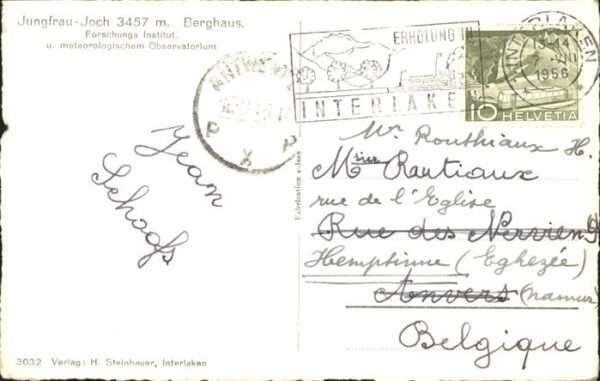 Jungfrau-Joch 3457 m. Berghaus.
Forschungs Institut.
u. meteorologischem Observatorium
ERHOLUNG IN
INTERLAKEN
INTERLAKEN
13-14
1956
10 HELVETIA
ANTWE
P X P
Jean
Schoofs
Mr Routhiaux H.
Msieur Rautiaux
rue de l'Eglise
Rue des Nerviens
Hemptinne (Eghezée)
Anvers (Namur)
Belgique
Fabrication suisse
3032 Verlag: H. Steinhauer, Interlaken